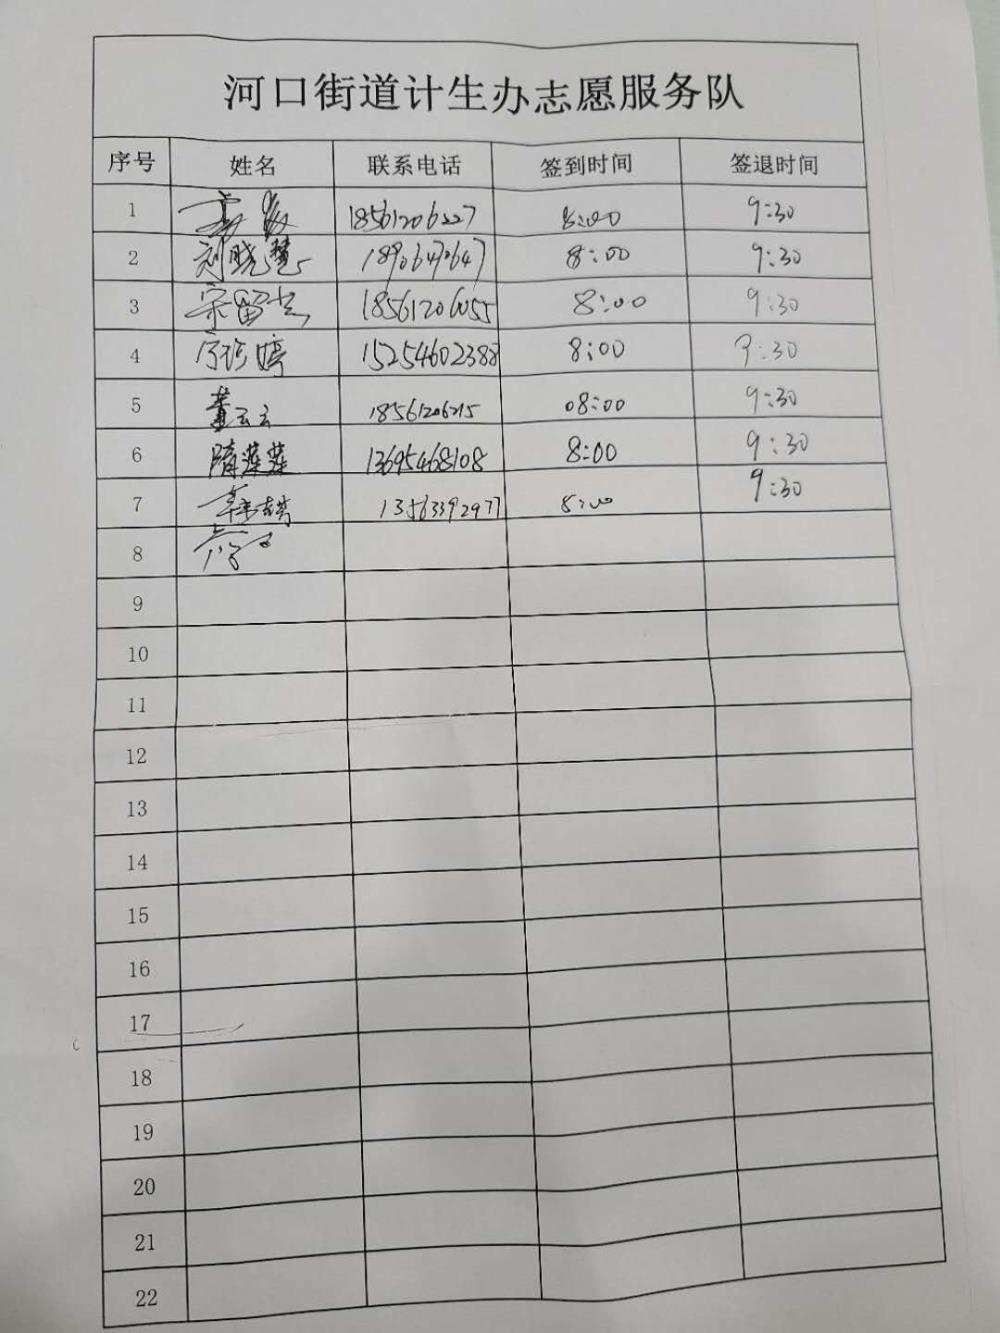 河口街道计生办志愿服务队
序号 姓名 联系电话 签到时间 签退时间
1 18561206227 8:00 9:30
2 刘晓慧 18906470647 8:00 9:30
3 宋留忠 18561206055 8:00 9:30
4 15254602388 8:00 9:30
5 董云云 18561206215 08:00 9:30
6 隋莲莲 13695468108 8:00 9:30
7 13563392977 8:00 9:30
8
9
10
11
12
13
14
15
16
17
18
19
20
21
22